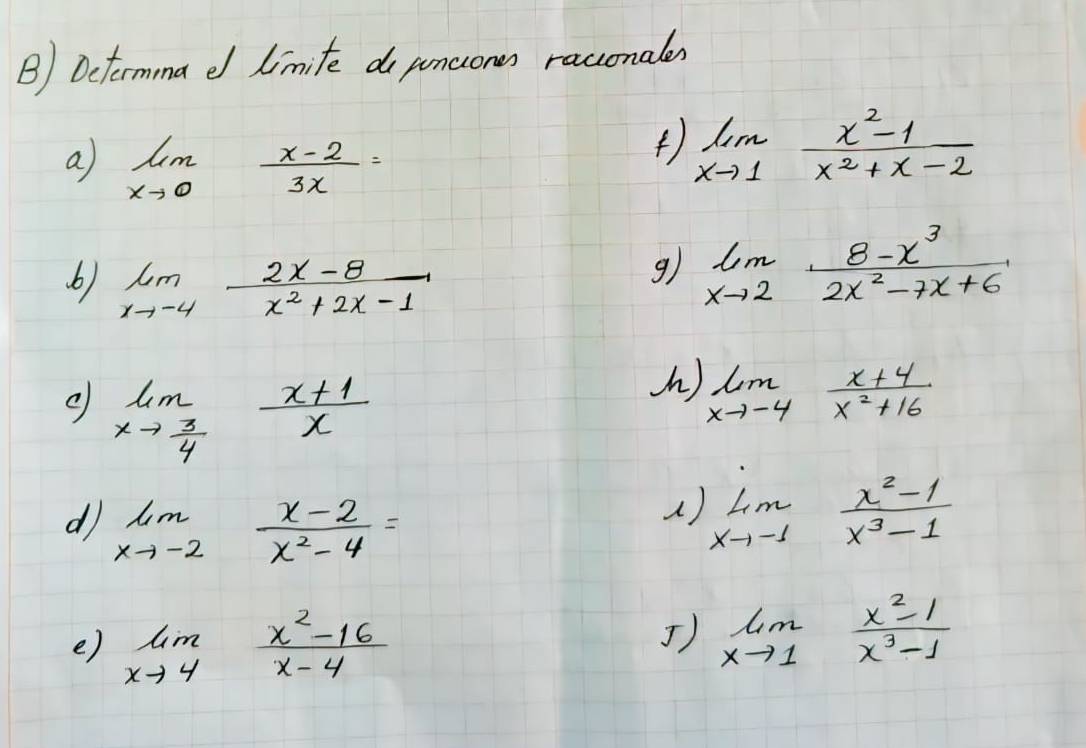 B) Determina el límite de funciones racionales
a) lim x→0 (x-2)/(3x) =
b) lim x→-4 (2x-8)/(x²+2x-1)
c) lim x→3/4 (x+1)/x
d) lim x→-2 (x-2)/(x²-4) =
e) lim x→4 (x²-16)/(x-4)
f) lim x→1 (x²-1)/(x²+x-2)
g) lim x→2 (8-x³)/(2x²-7x+6)
h) lim x→-4 (x+4)/(x²+16)
i) Lim x→-1 (x²-1)/(x³-1)
J) lim x→1 (x²-1)/(x³-1)